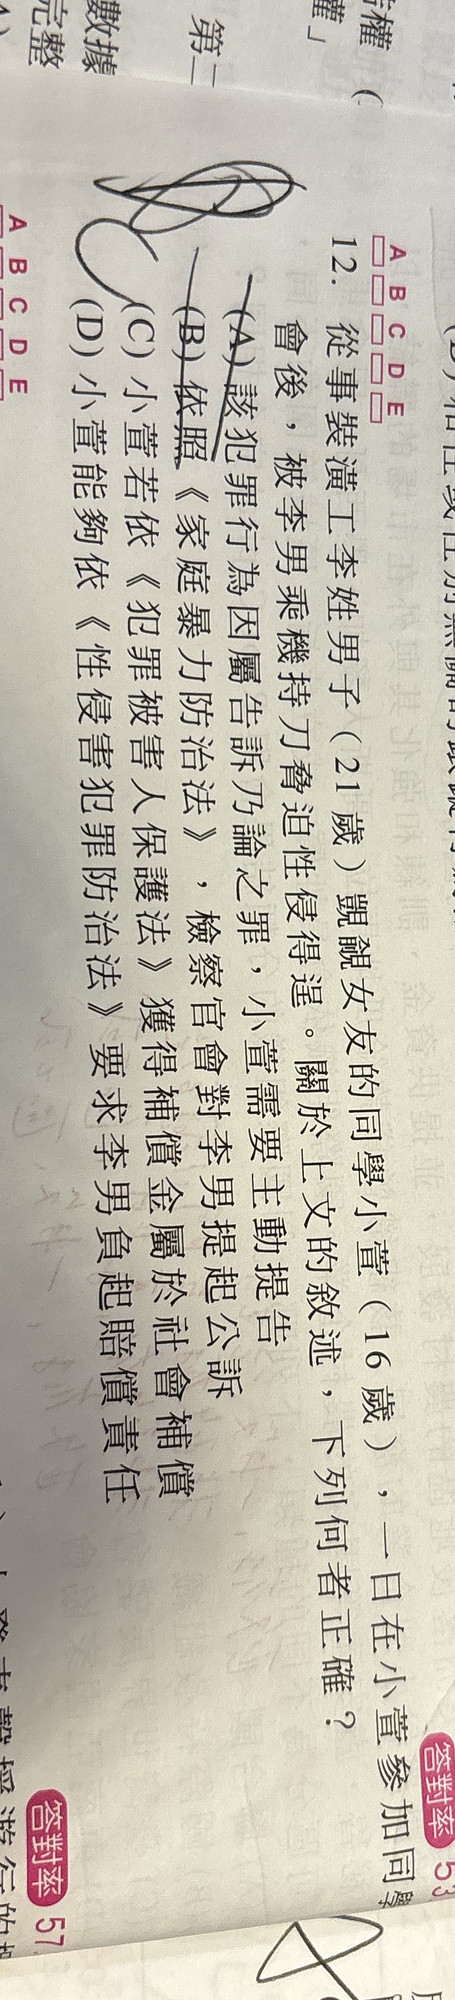 權（
權」
第二
數據
完整
答對率 53
A B C D E
12. 從事裝潢工李姓男子（21 歲）覬覦女友的同學小萱（16 歲），一日在小萱參加同學
會後，被李男乘機持刀脅迫性侵得逞。關於上文的敘述，下列何者正確？
(A) 該犯罪行為因屬告訴乃論之罪，小萱需要主動提告
(B) 依照《家庭暴力防治法》，檢察官會對李男提起公訴
(C) 小萱若依《犯罪被害人保護法》獲得補償金屬於社會補償
(D) 小萱能夠依《性侵害犯罪防治法》要求李男負起賠償責任
答對率 57
A B C D E